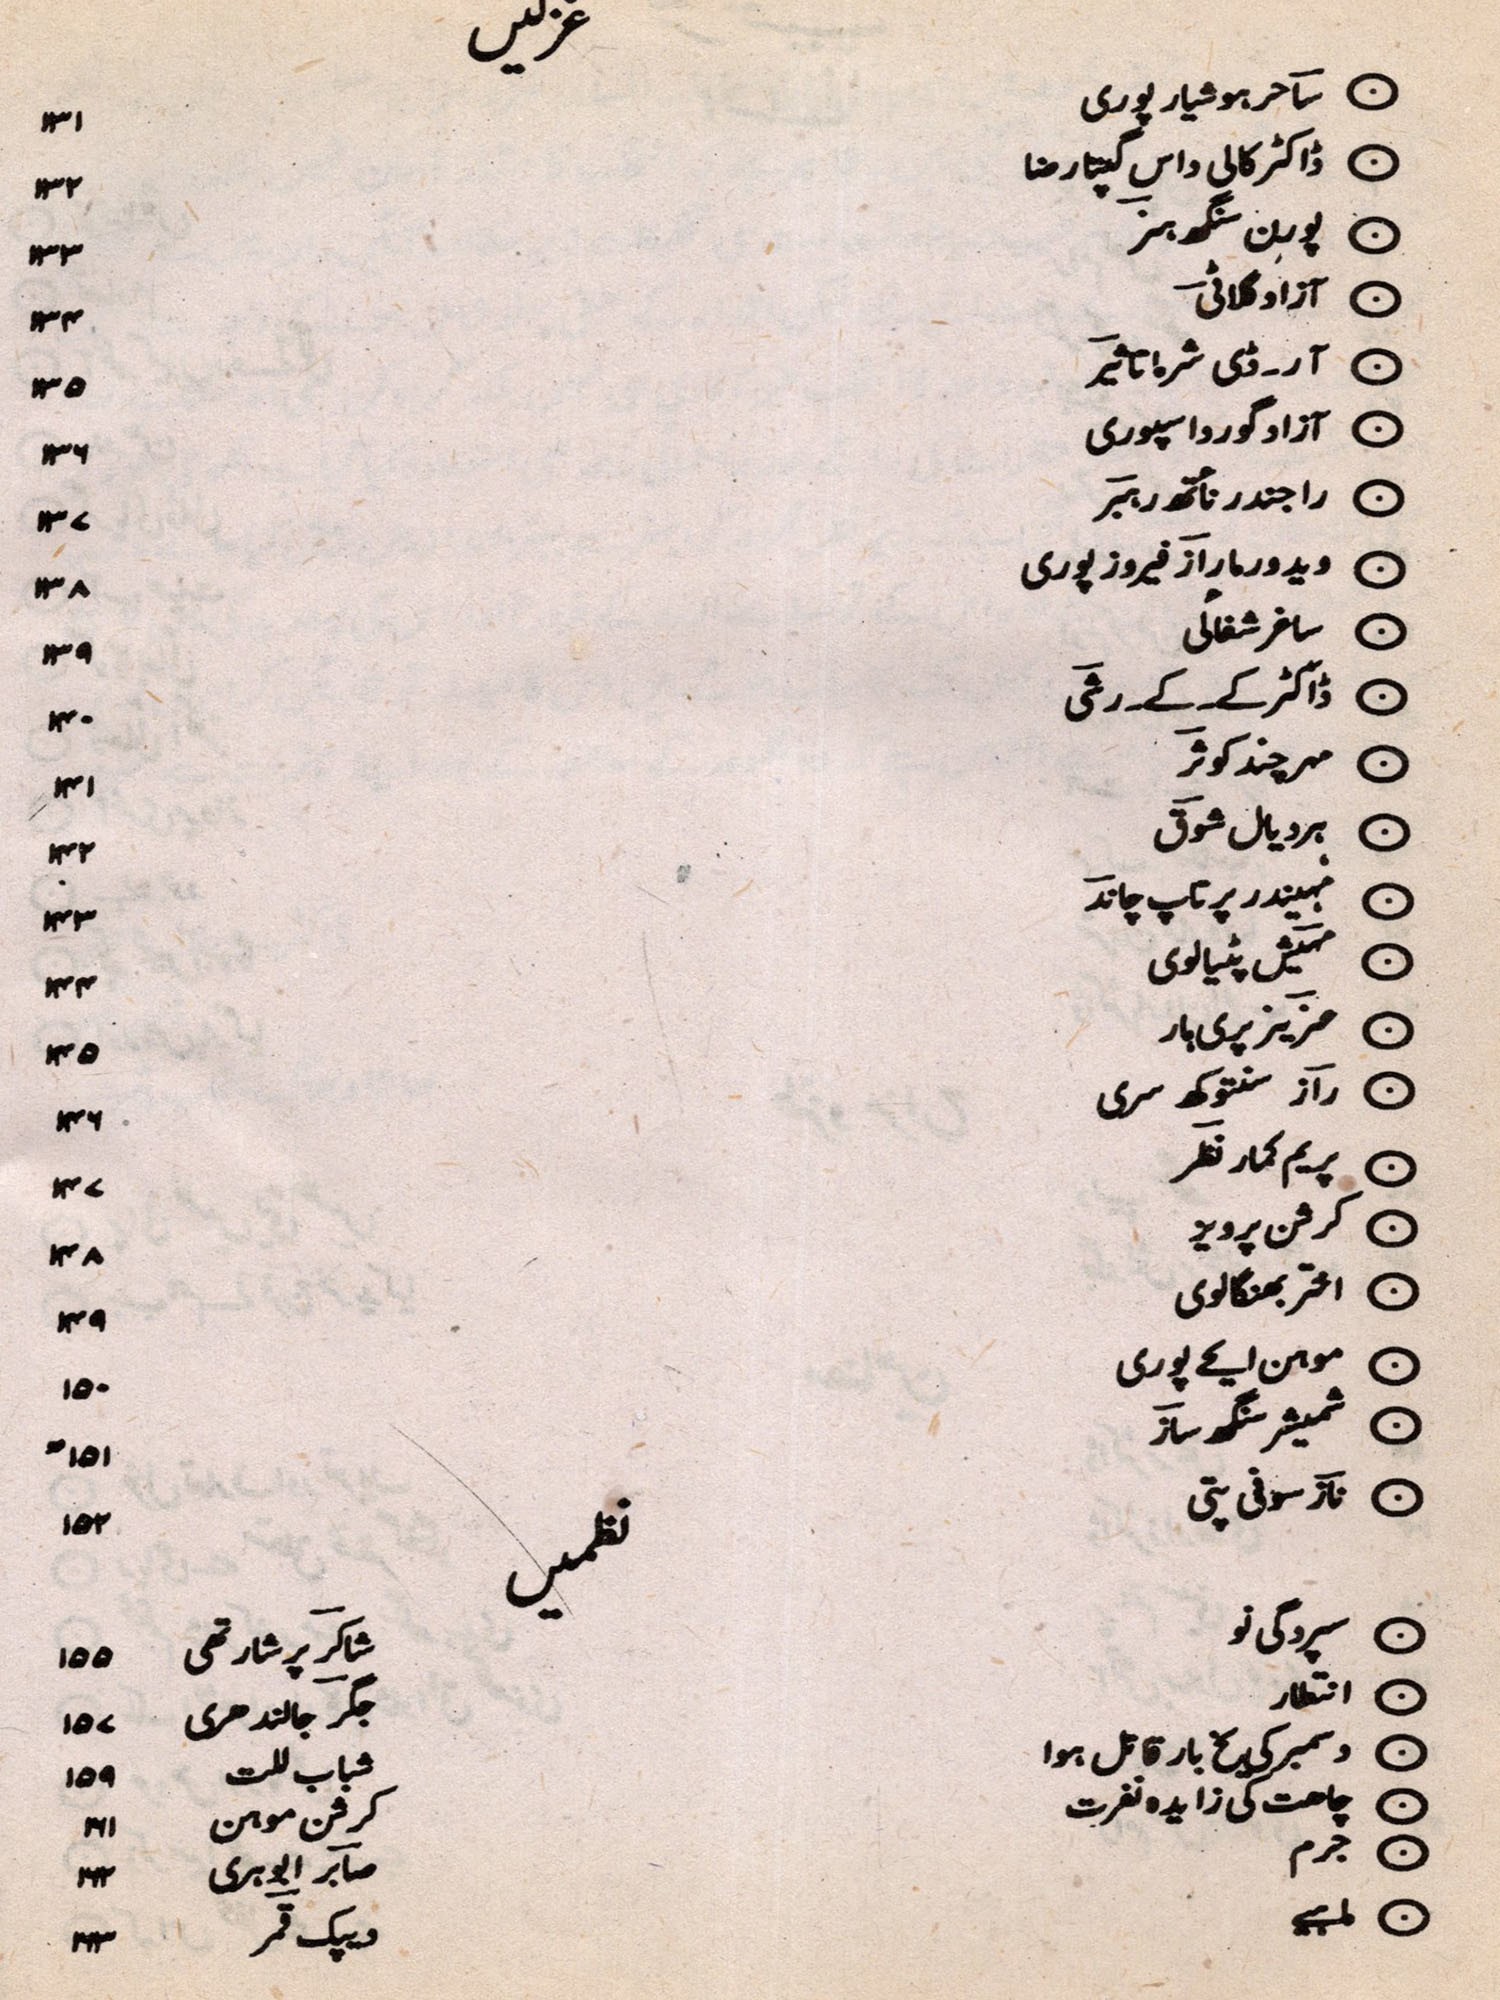 غزلیں
ساحر ہوشیار پوری ۱۳۱
ڈاکٹر کالی داس گپتا رضا ۱۳۲
پورن سنگھ ہنر ۱۳۳
آزاد گلاٹی ۱۳۴
آر۔ڈی شرما تاثیر ۱۳۵
آزاد گورداسپوری ۱۳۶
راجندر ناتھ رہبر ۱۳۷
وید ورما راز فیروز پوری ۱۳۸
ساغر شفائی ۱۳۹
ڈاکٹر کے۔کے۔رشی ۱۴۰
مہر چند کوثر ۱۴۱
ہردیال شوق ۱۴۲
مہیندر پرتاپ چاند ۱۴۳
مہیش پٹیالوی ۱۴۴
عزیز پری ہار ۱۴۵
راز سنتوکھ سری ۱۴۶
پریم کمار نظر ۱۴۷
کرشن پرویز ۱۴۸
اختر بھنگالوی ۱۴۹
موہن ایکے پوری ۱۵۰
شمیشر سنگھ ساز ۱۵۱
ناز سوفی پتی ۱۵۲
نظمیں
سپردگی نو شاکر پرشارتھی ۱۵۵
انتظار جگر جالندھری ۱۵۷
دسمبر کی یخ بار قاتل ہوا شباب للت ۱۵۹
چاہت کی زایدہ نفرت کرشن موہن ۱۶۱
جرم صابر ابوہری ۱۶۲
دیپک قمر ۱۶۳